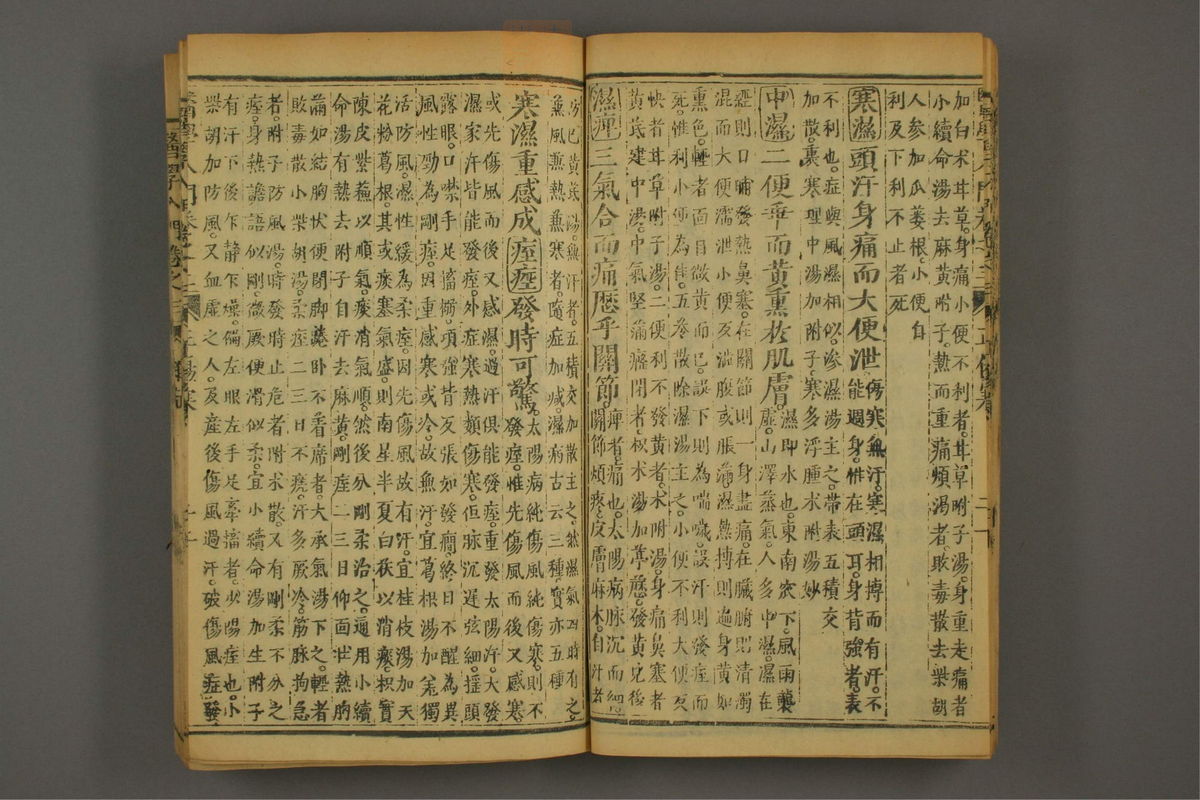 加白朮甘草身痛小便不利者甘草附子湯身重走痛者
小續命湯去麻黃附子熱而重痛煩渴者敗毒散去柴胡
人參加瓜蔞根小便自
利及下利不止者死
寒濕頭汗身痛而大便泄傷寒無汗寒濕相搏而有汗不
能週身惟在頭耳身背強者表
不利也症與風濕相似滲濕湯主之帶表五積交
加散裏寒理中湯加附子寒多浮腫朮附湯妙
中濕二便垂而黃熏於肌膚濕即水也東南卑下風雨襲
虛山澤蒸氣人多中濕濕在
經則日晡發熱鼻塞在關節則一身盡痛在臟腑則清濁
混而大便濡泄小便反澁腹或脹滿濕熱搏則遍身黃如
熏色輕者面目微黃而已誤下則為喘嘰誤汗則發痙而
死惟利小便為佳五苓散除濕湯主之小便不利大便反
快者甘草附子湯二便利不發黃者朮附湯身痛鼻塞者
黃芪建中湯中氣堅滿癃閉者枳朮湯加葶藶發黃見後
濕痺三氣合而痛歷乎關節痺者痛也太陽病脉沉而細
關節煩疼皮膚麻木自汗者
防己黃芪湯無汗者五積交加散主之然濕氣四時有之
兼風兼熱兼寒者隨症加減濕病古云三種實亦五種
寒濕重感成痙痙發時可驚太陽病純傷風純傷寒則不
發痙惟先傷風而後又感寒
或先傷風而後又感濕過汗俱能發痙重發太陽汗大發
濕家汗皆能發痙外症寒熱類傷寒但脉沉遲弦細搖頭
露眼口噤手足搐搦項強背反張如發癎終日不醒為異
風性勁為剛痙因重感寒或冷故無汗宜葛根湯加羌獨
活防風濕性緩為柔痙因先傷風故有汗宜桂枝湯加天
花粉葛根其或痰塞氣盛則南星半夏白茯以消痰枳實
陳皮紫蘇以順氣痰消氣順然後分剛柔治之通用小續
命湯有熱去附子自汗去麻黃剛痙二三日仰面壯熱胸
滿如結胸狀便閉脚踡卧不着席者大承氣湯下之輕者
敗毒散小柴胡湯柔痙二三日不瘥汗多厥冷筋脉拘急
者附子防風湯時發時止危者附朮散又有剛柔不分之
痙身熱譫語似剛微厥便滑似柔宜小續命湯加生附子
有汗下後乍靜乍燥偏左眼左手足牽搐者少陽痙也小
柴胡加防風又血虛之人及產後傷風過汗破傷風症發